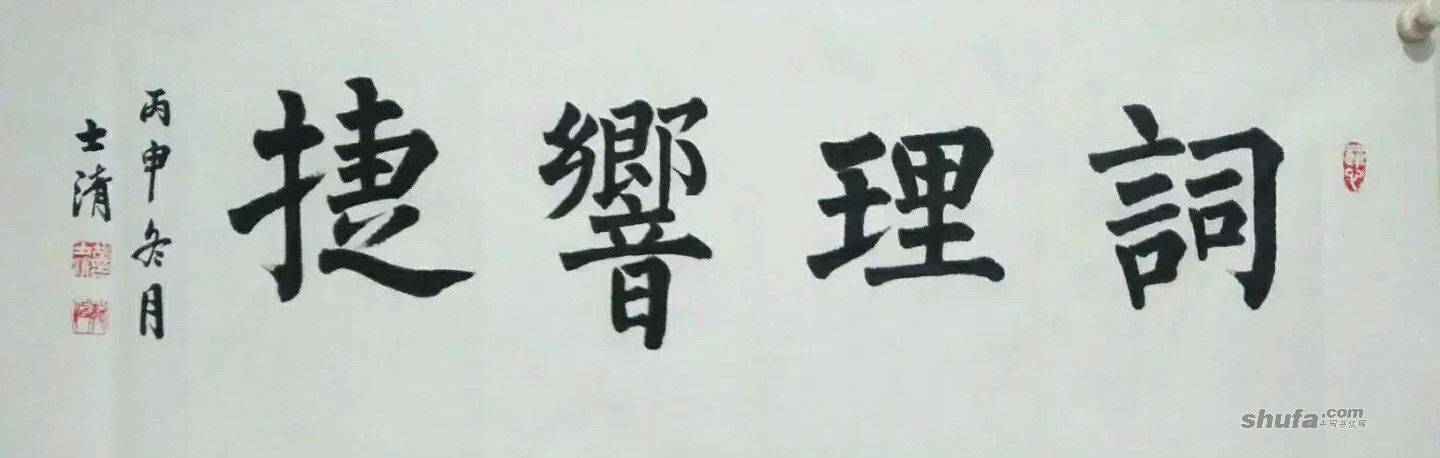 詞理響捷
丙申冬月
士清
shufa.com